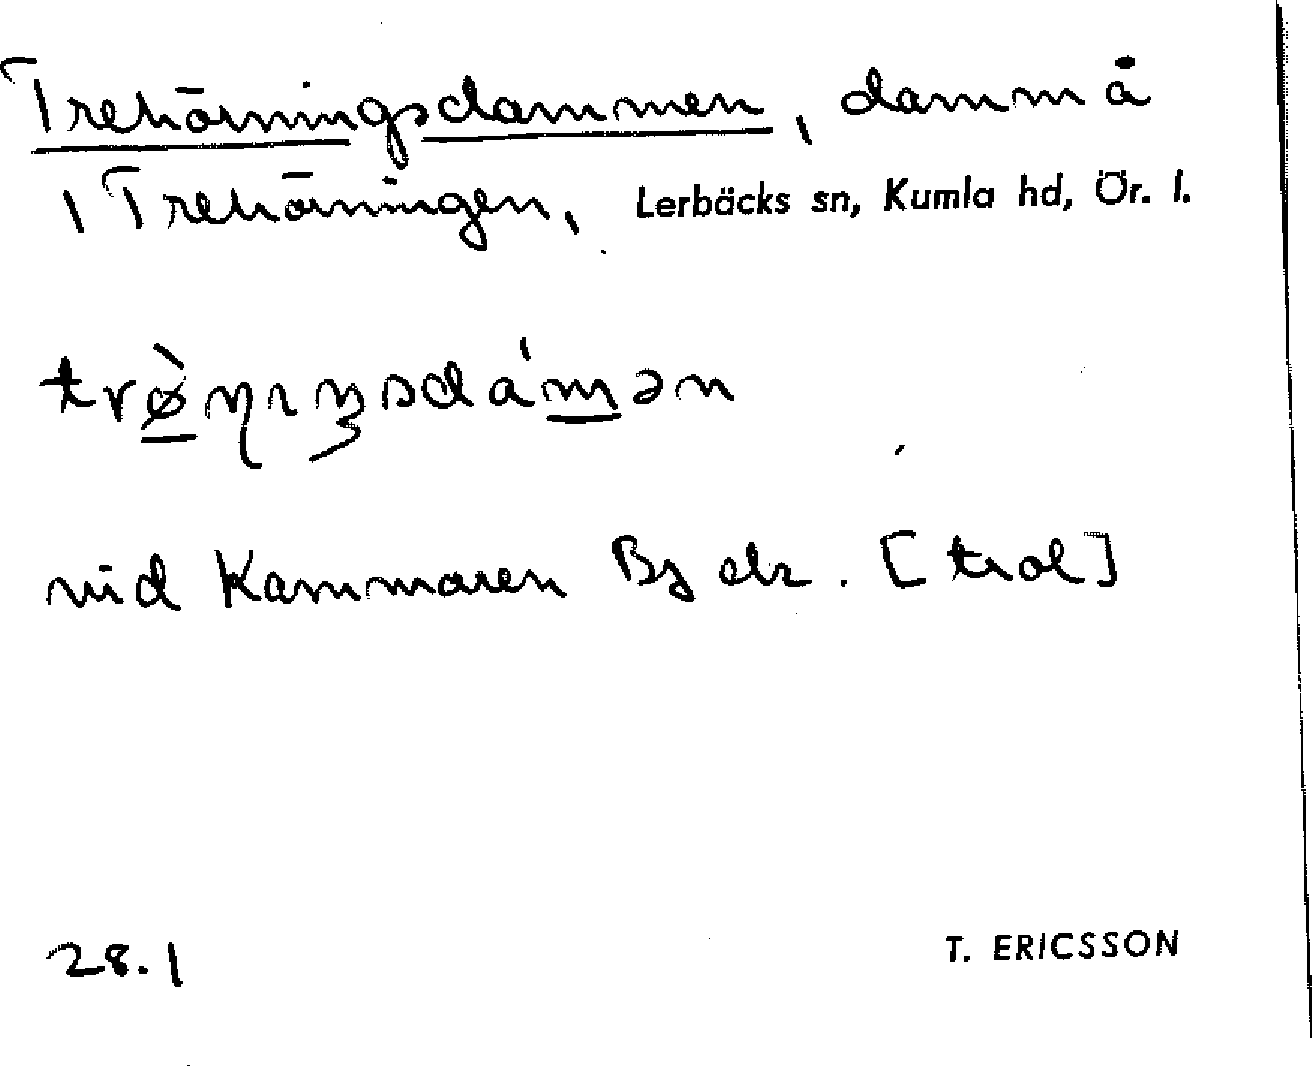 Trehörningsdammen, damm å
i Trehörningen, Lerbäcks sn, Kumla hd, Ör. l.
vid Kammaren By elr. [trol]
28.1
T. ERICSSON